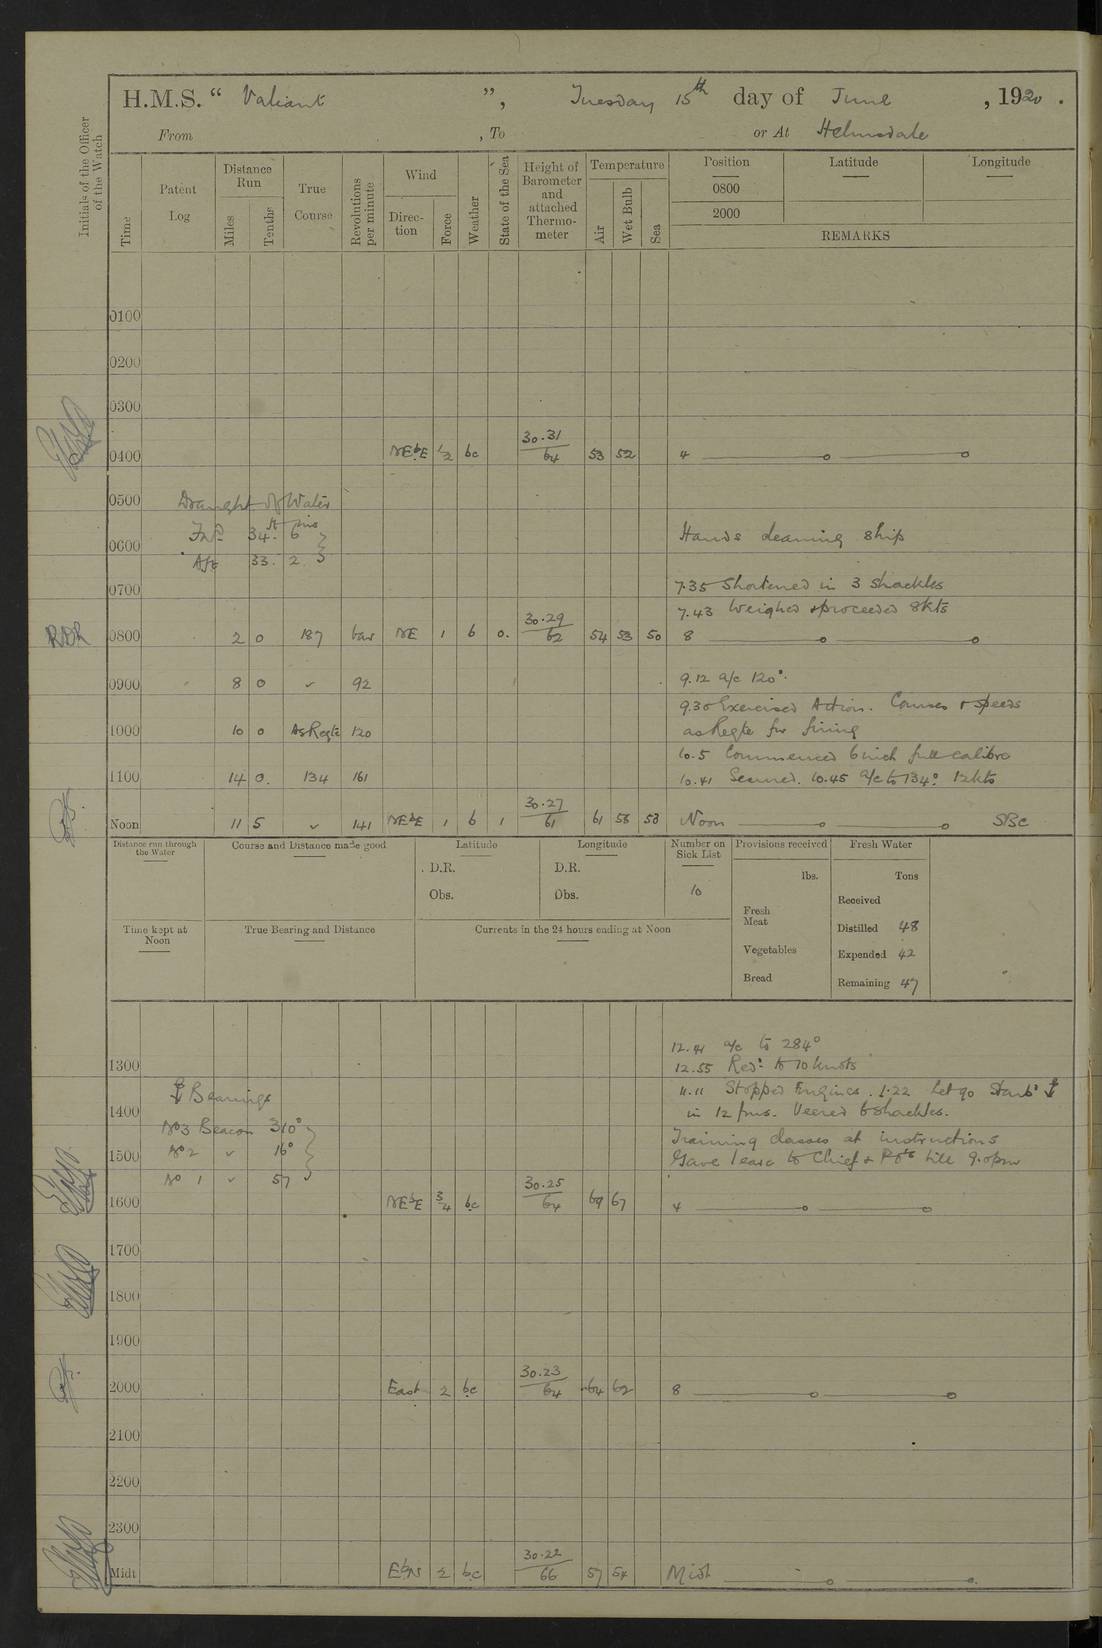 H.M.S. “ Valiant ”, Tuesday 15th day of June , 1920 .
From , To or At Helmsdale
Initials of the Officer of the Watch
Time
Patent Log
Distance Run
Miles
Tenths
True Course
Revolutions per minute
Wind
Direction
Force
Weather
State of the Sea
Height of Barometer and attached Thermometer
Temperature
Air
Wet Bulb
Sea
Position
Latitude
Longitude
0800
2000
REMARKS
0100
0200
0300
0400 NEbE 1/2 bc 30.31/64 53 52 4
0500 Draught of Water
Fwd 34 ft 6 ins
0600 Hands cleaning ship
Aft 33. 2
0700 7.35 Shortened in 3 shackles
7.43 Weighed & proceeded 8kts
RDR 0800 2 0 187 var NE 1 b 0. 30.29/62 54 53 50 8
0900 8 0 ✓ 92 9.12 a/c 120°.
9.30 Exercised Action. Courses & speeds
1000 10 0 As Reqte 120 as Reqte for firing
10.5 Commenced 6 inch full calibre
1100 14 0. 134 161 10.41 Secured. 10.45 a/c to 134° 12kts
Noon 11 5 ✓ 141 NEbE 1 b 1 30.27/61 61 58 53 Noon SBC
Distance run through the Water
Course and Distance made good
Latitude
D.R.
Obs.
Longitude
D.R.
Obs.
Number on Sick List
10
Provisions received
lbs.
Fresh Meat
Vegetables
Bread
Fresh Water
Tons
Received
Distilled 48
Expended 42
Remaining 47
Time kept at Noon
True Bearing and Distance
Currents in the 24 hours ending at Noon
12.41 a/c to 284°
1300 12.55 Red. to 10 knots
Bearings 1.11 Stopped Engines. 1.22 Let go Starb
1400 in 12 fms. Veered 6 shackles.
No 3 Beacon 310° Training classes at instructions
1500 No 2 ✓ 16° Gave leave to Chief & POts till 9.0pm
No 1 ✓ 57
1600 NEbE 3/4 bc 30.25/64 69 67 4
1700
1800
1900
2000 East 2 bc 30.23/64 64 62 8
2100
2200
2300
Midt EbN 2 bc 30.22/66 57 54 Midt